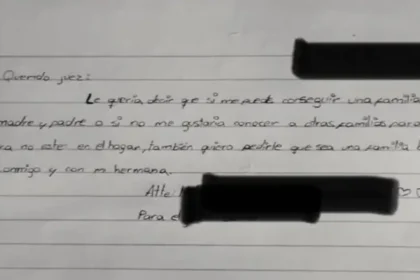 Querido juez:
Le quería decir que si me puede conseguir una familia
madre y padre o si no me gustaría conocer a otras familias para
no este en el hogar, también quiero pedirle que sea una familia
conmigo y con mi hermana,
Atte:
Para